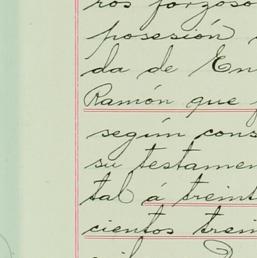 ros forzoso
posesión
da de En
Ramón que
según cons
su testamen
tal á treint
cientos trein